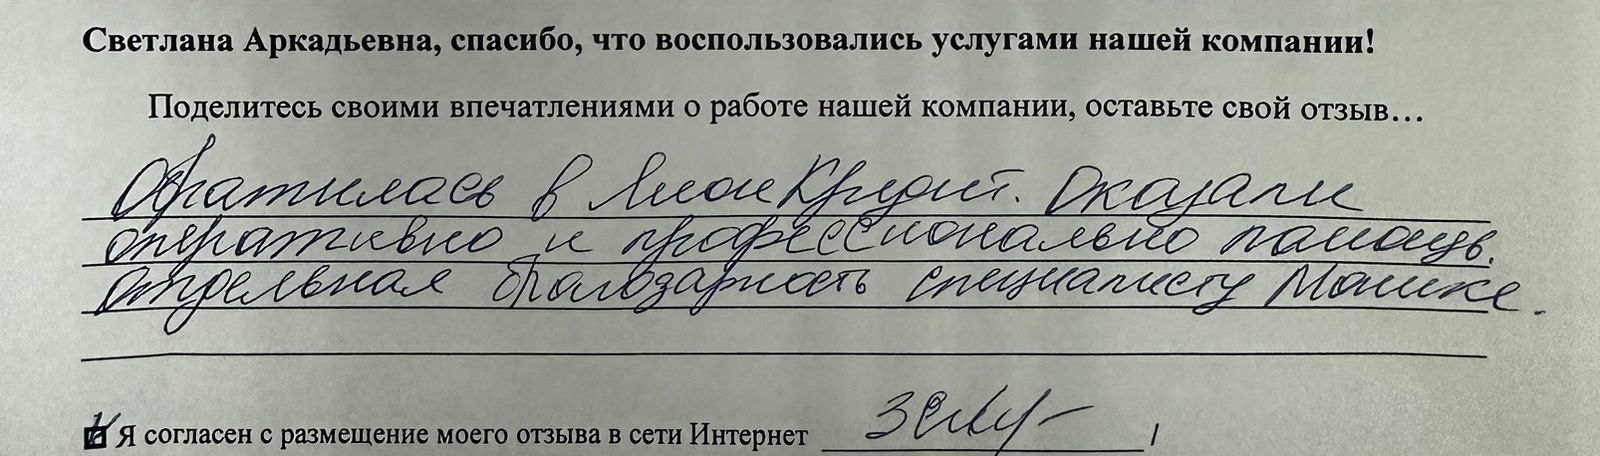 Светлана Аркадьевна, спасибо, что воспользовались услугами нашей компании!
Поделитесь своими впечатлениями о работе нашей компании, оставьте свой отзыв...
Обратилась в Кредит. Оказали
оперативно и профессионально помощь.
Отдельная благодарность специалисту Монике.
Я согласен с размещение моего отзыва в сети Интернет